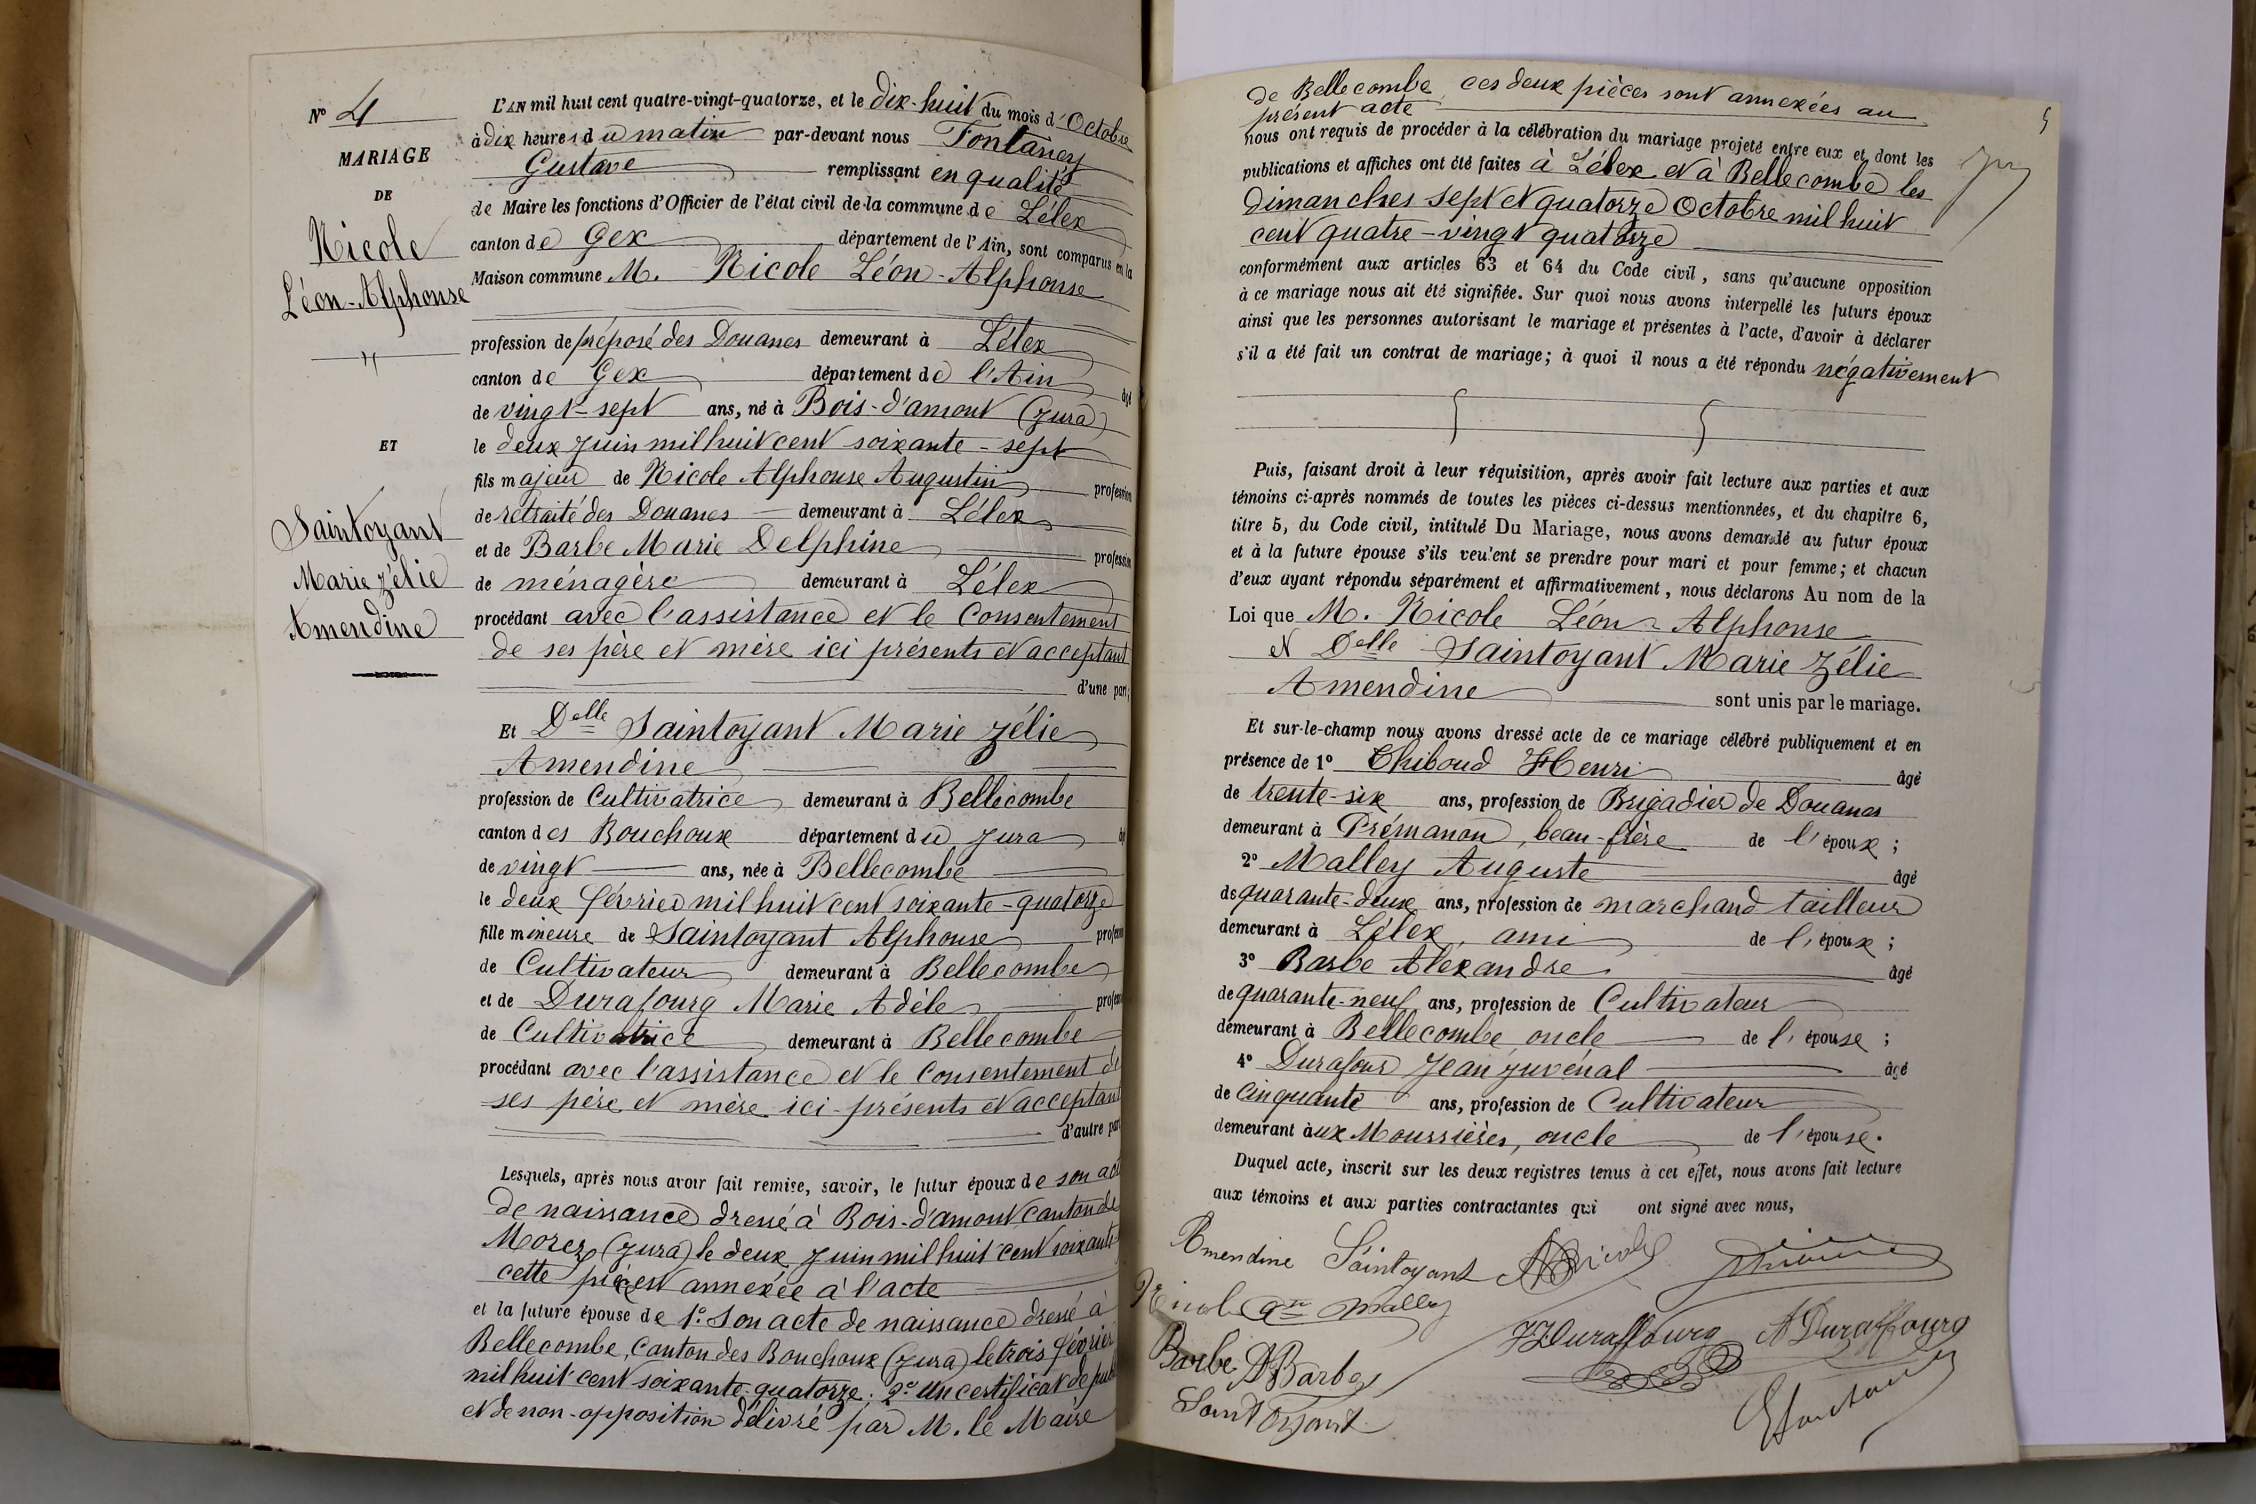 N° 4
MARIAGE
DE
Nicole
Léon-Alphonse
ET
Saintoyant
Marie Zélie
Amendine
L'AN mil huit cent quatre-vingt-quatorze, et le dix-huit du mois d'Octobre
à dix heures du matin par-devant nous Fontaney
Gustave remplissant en qualité
de Maire les fonctions d'Officier de l'état civil de la commune de Lélex
canton de Gex département de l'Ain, sont comparus en la
Maison commune M. Nicole Léon-Alphonse
profession de préposé des Douanes demeurant à Lélex
canton de Gex département de l'Ain âgé
de vingt-sept ans, né à Bois-d'amont (Jura)
le deux Juin mil huit cent soixante-sept
fils majeur de Nicole Alphonse Augustin profession
de retraité des Douanes demeurant à Lélex
et de Barbe Marie Delphine profession
de ménagère demeurant à Lélex
procédant avec l'assistance et le Consentement
de ses père et mère ici présents et acceptant
d'une part;
Et Delle Saintoyant Marie Zélie
Amendine
profession de Cultivatrice demeurant à Bellecombe
canton des Bouchoux département du Jura
de vingt ans, née à Bellecombe
le deux février mil huit cent soixante-quatorze
fille mineure de Saintoyant Alphonse profession
de Cultivateur demeurant à Bellecombe
et de Durafourg Marie Adèle profess
de Cultivatrice demeurant à Bellecombe
procédant avec l'assistance et le Consentement de
ses père et mère ici présents et acceptant
d'autre part
Lesquels, après nous avoir fait remise, savoir, le futur époux de son acte
de naissance dressé à Bois-d'amont canton de
Morez (Jura) le deux Juin mil huit cent soixante-
cette pièce est annexée à l'acte
et la future épouse de 1°. Son acte de naissance dressé à
Bellecombe, Canton des Bouchoux (Jura) le trois février
mil huit cent soixante-quatorze; 2° Un certificat de publ
et de non-opposition délivré par M. le Maire
5
de Bellecombe, ces deux pièces sont annexées au
présent acte
nous ont requis de procéder à la célébration du mariage projeté entre eux et dont les
publications et affiches ont été faites à Lélex et à Bellecombe les
Dimanches sept et quatorze Octobre mil huit
cent quatre-vingt quatorze
conformément aux articles 63 et 64 du Code civil, sans qu'aucune opposition
à ce mariage nous ait été signifiée. Sur quoi nous avons interpellé les futurs époux
ainsi que les personnes autorisant le mariage et présentes à l'acte, d'avoir à déclarer
s'il a été fait un contrat de mariage; à quoi il nous a été répondu négativement
Puis, faisant droit à leur réquisition, après avoir fait lecture aux parties et aux
témoins ci-après nommés de toutes les pièces ci-dessus mentionnées, et du chapitre 6,
titre 5, du Code civil, intitulé Du Mariage, nous avons demandé au futur époux
et à la future épouse s'ils veulent se prendre pour mari et pour femme; et chacun
d'eux ayant répondu séparément et affirmativement, nous déclarons Au nom de la
Loi que M. Nicole Léon-Alphonse
et Delle Saintoyant Marie Zélie
Amendine sont unis par le mariage.
Et sur-le-champ nous avons dressé acte de ce mariage célébré publiquement et en
présence de 1° Thiboud Henri âgé
de trente-six ans, profession de Brigadier de Douanes
demeurant à Prémanon, beau-frère de l'époux;
2° Malley Auguste âgé
de quarante-deux ans, profession de marchand tailleur
demeurant à Lélex, ami de l'époux;
3° Barbe Alexandre âgé
de quarante-neuf ans, profession de Cultivateur
demeurant à Bellecombe oncle de l'épouse;
4° Durafour Jean Juvénal âgé
de Cinquante ans, profession de Cultivateur
demeurant aux Moussières, oncle de l'épouse.
Duquel acte, inscrit sur les deux registres tenus à cet effet, nous avons fait lecture
aux témoins et aux parties contractantes qui ont signé avec nous,
Amendine Saintoyant Nicole
Nicole Malley
JJ Duraffourg A Duraffourg
Barbe A Barbe
Saintoyant